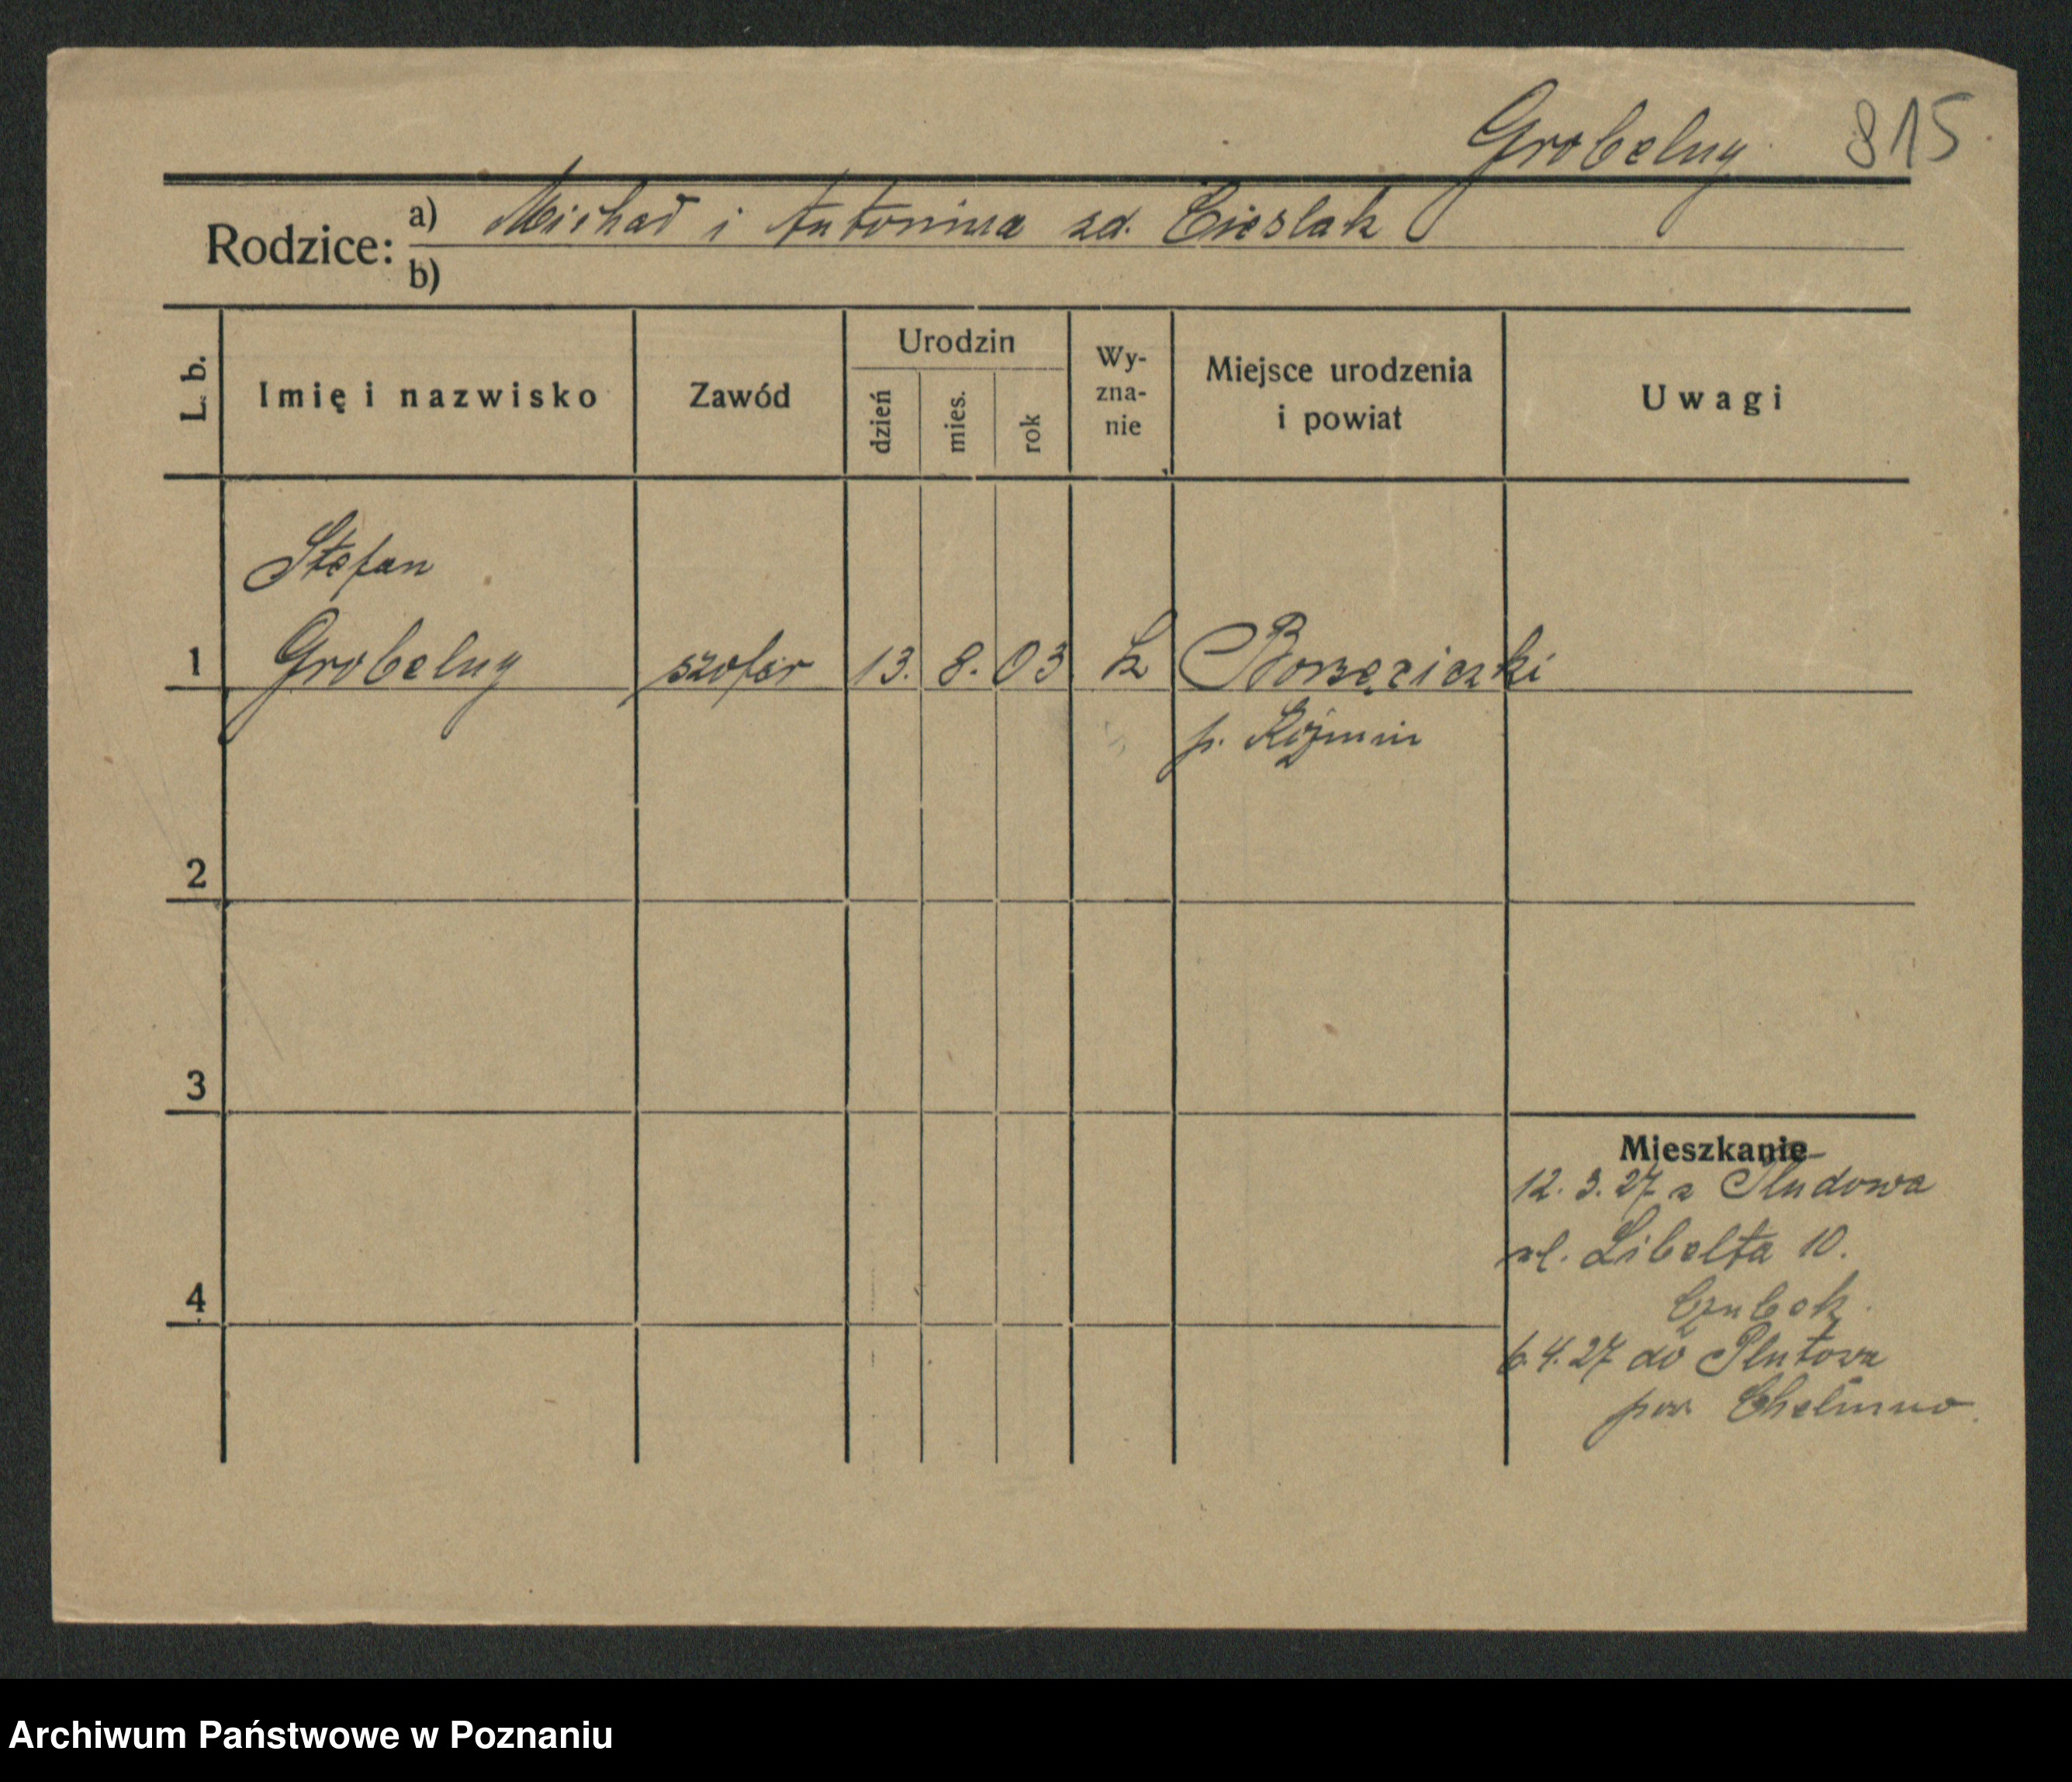 Grobelny 815
Rodzice: a) Michał i Antonina zd. Cieslak
b)
L. b. Imię i nazwisko Zawód Urodzin dzień mies. rok Wy-zna-nie Miejsce urodzenia i powiat Uwagi
Stefan
1 Grobelny szofer 13. 8. 03 k Borzęciczki
p. Koźmin
2
3
Mieszkanie
12. 3. 27 z
ul. Libelta 10.
4
6.4.27 do Plutowa
pow Chełmno
Archiwum Państwowe w Poznaniu